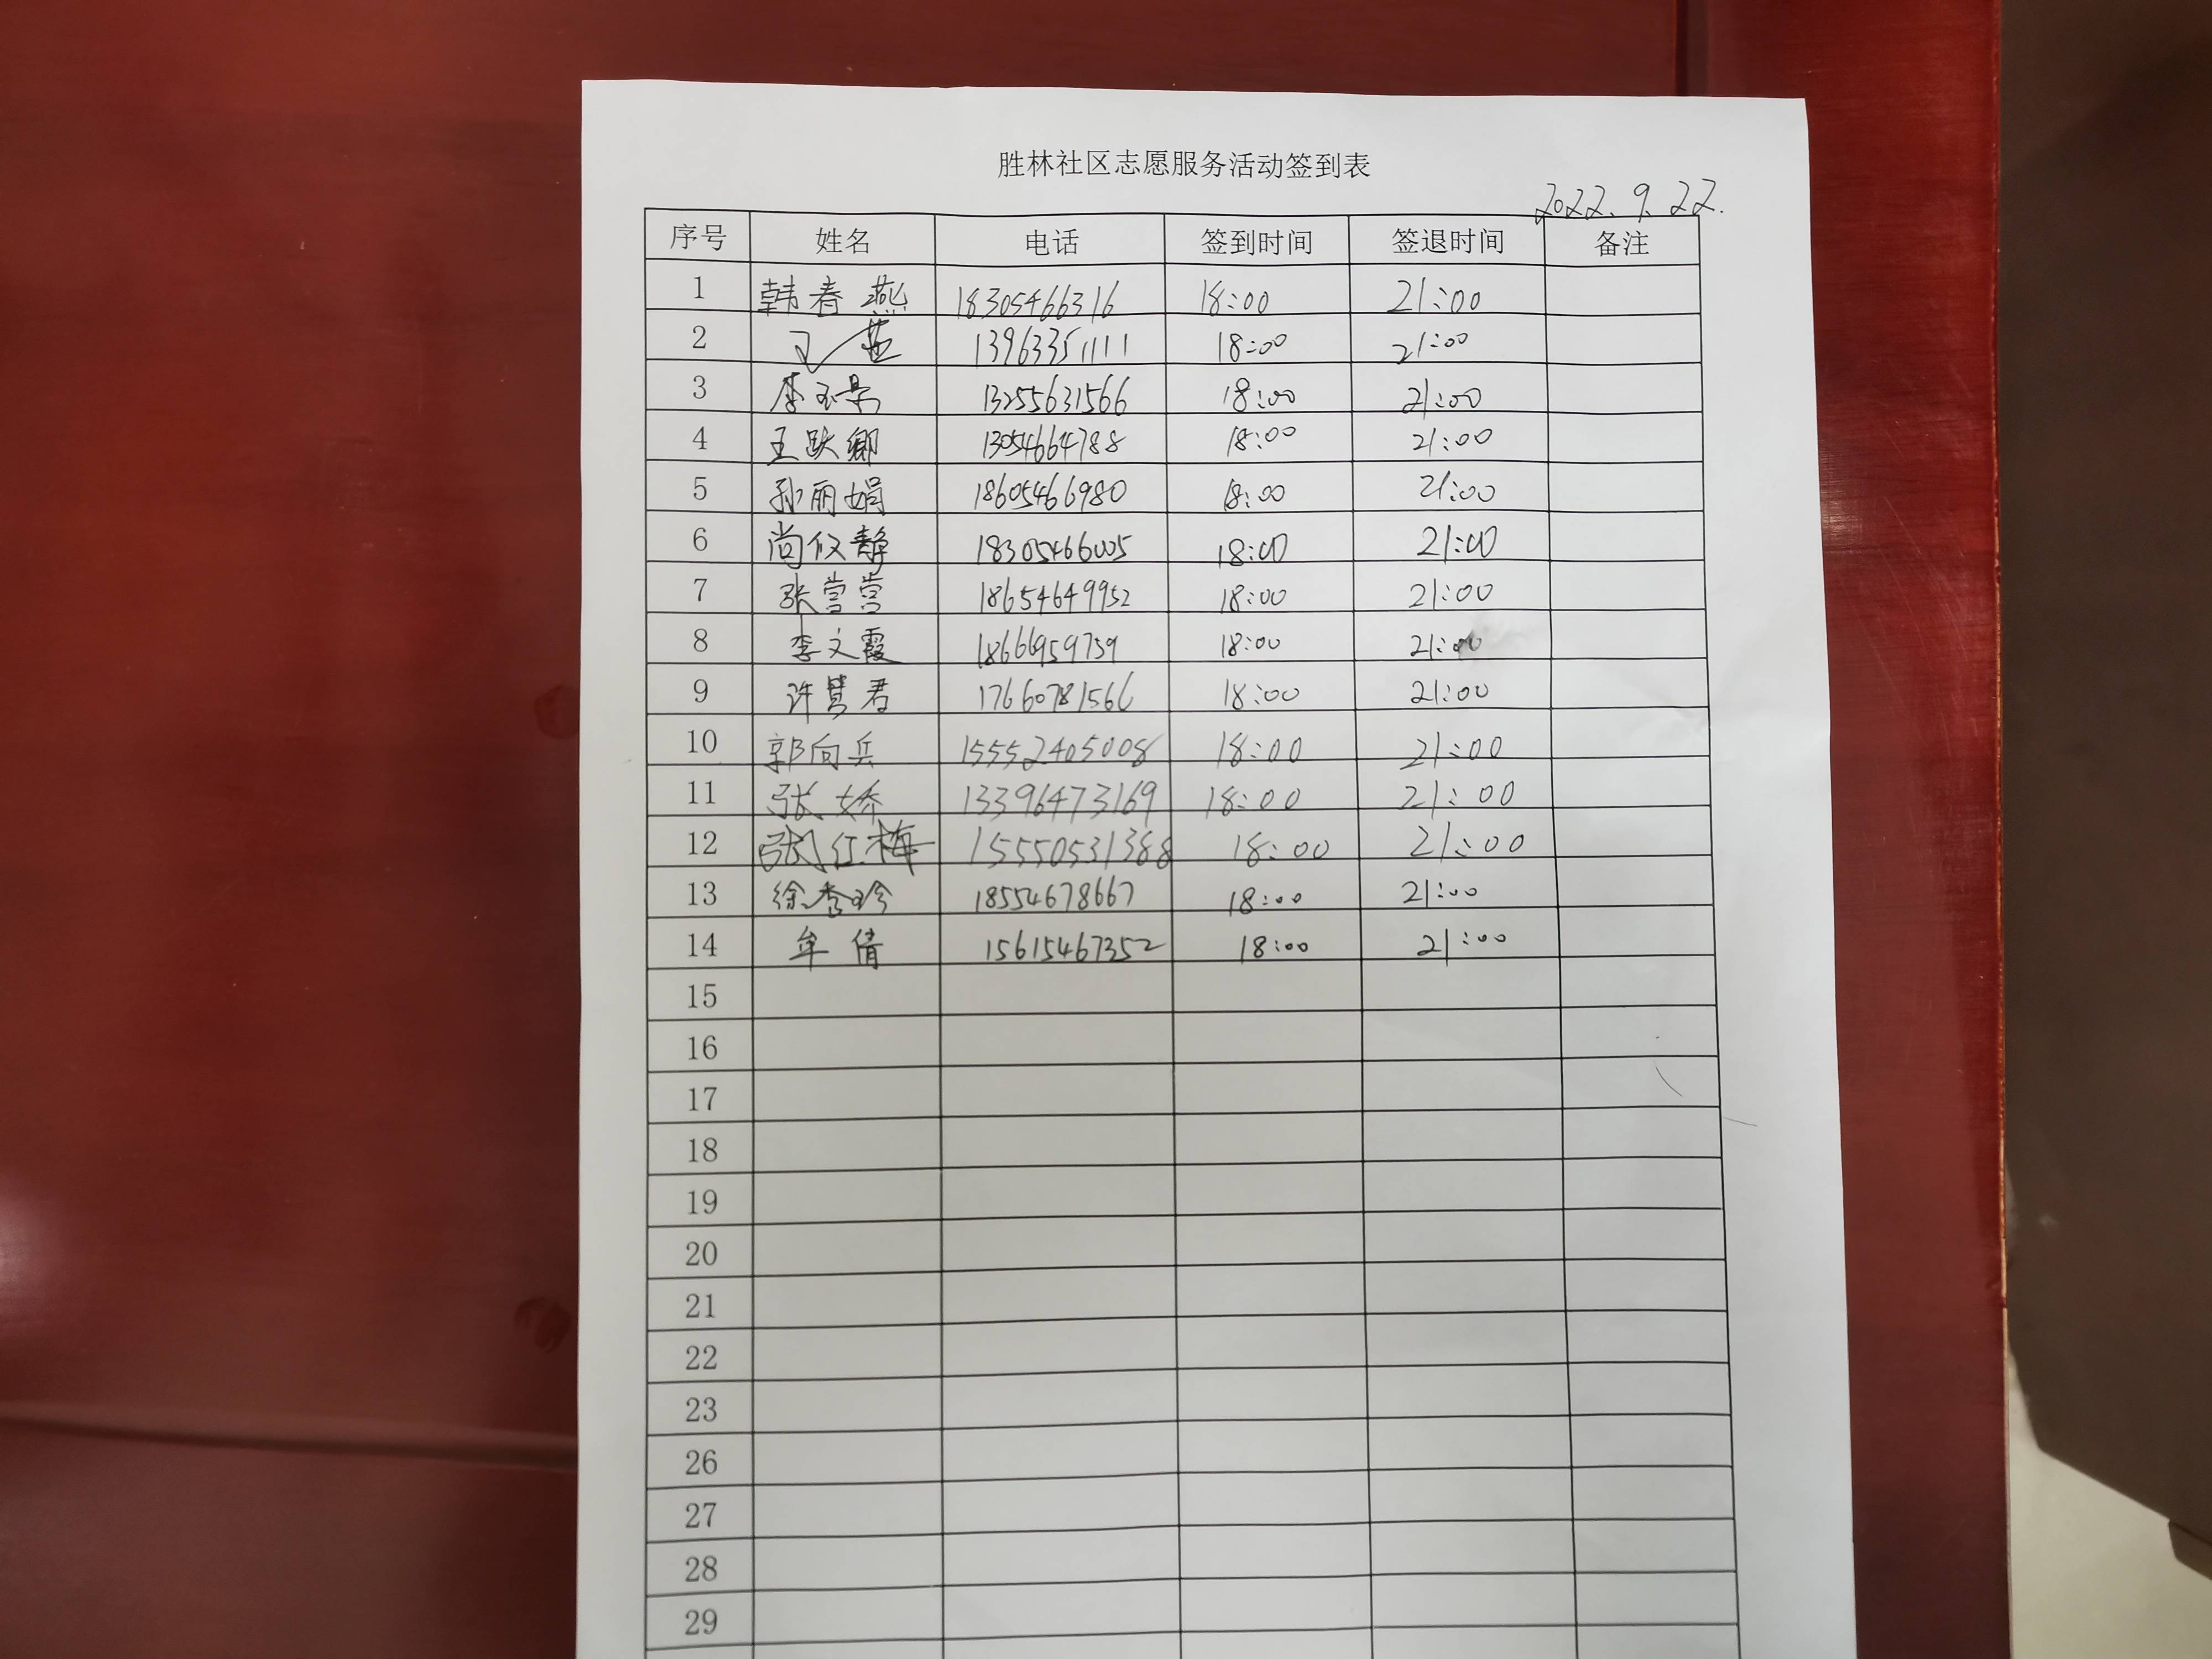 胜林社区志愿服务活动签到表
2022.9.22.
序号 姓名 电话 签到时间 签退时间 备注
1 韩春燕 18305466316 18:00 21:00
2 13963351111 18:00 21:00
3 李玉景 13255631566 18:00 21:00
4 王跃卿 13054664788 18:00 21:00
5 孙丽娟 18605466980 18:00 21:00
6 尚仪静 18305466005 18:00 21:00
7 张营营 18654649952 18:00 21:00
8 李文霞 18666959759 18:00 21:00
9 17660781566 18:00 21:00
10 郭向兵 15552405008 18:00 21:00
11 张娇 13396473169 18:00 21:00
12 张红梅 15550531388 18:00 21:00
13 徐秀玲 18554678667 18:00 21:00
14 牟倩 15615467352 18:00 21:00
15
16
17
18
19
20
21
22
23
26
27
28
29